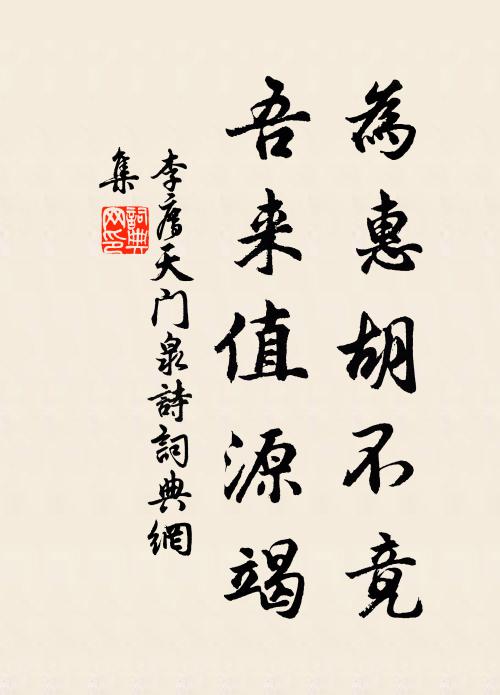 為惠胡不竟
吾来值源竭
李廌天門泉詩詞典網
集
詞典网印